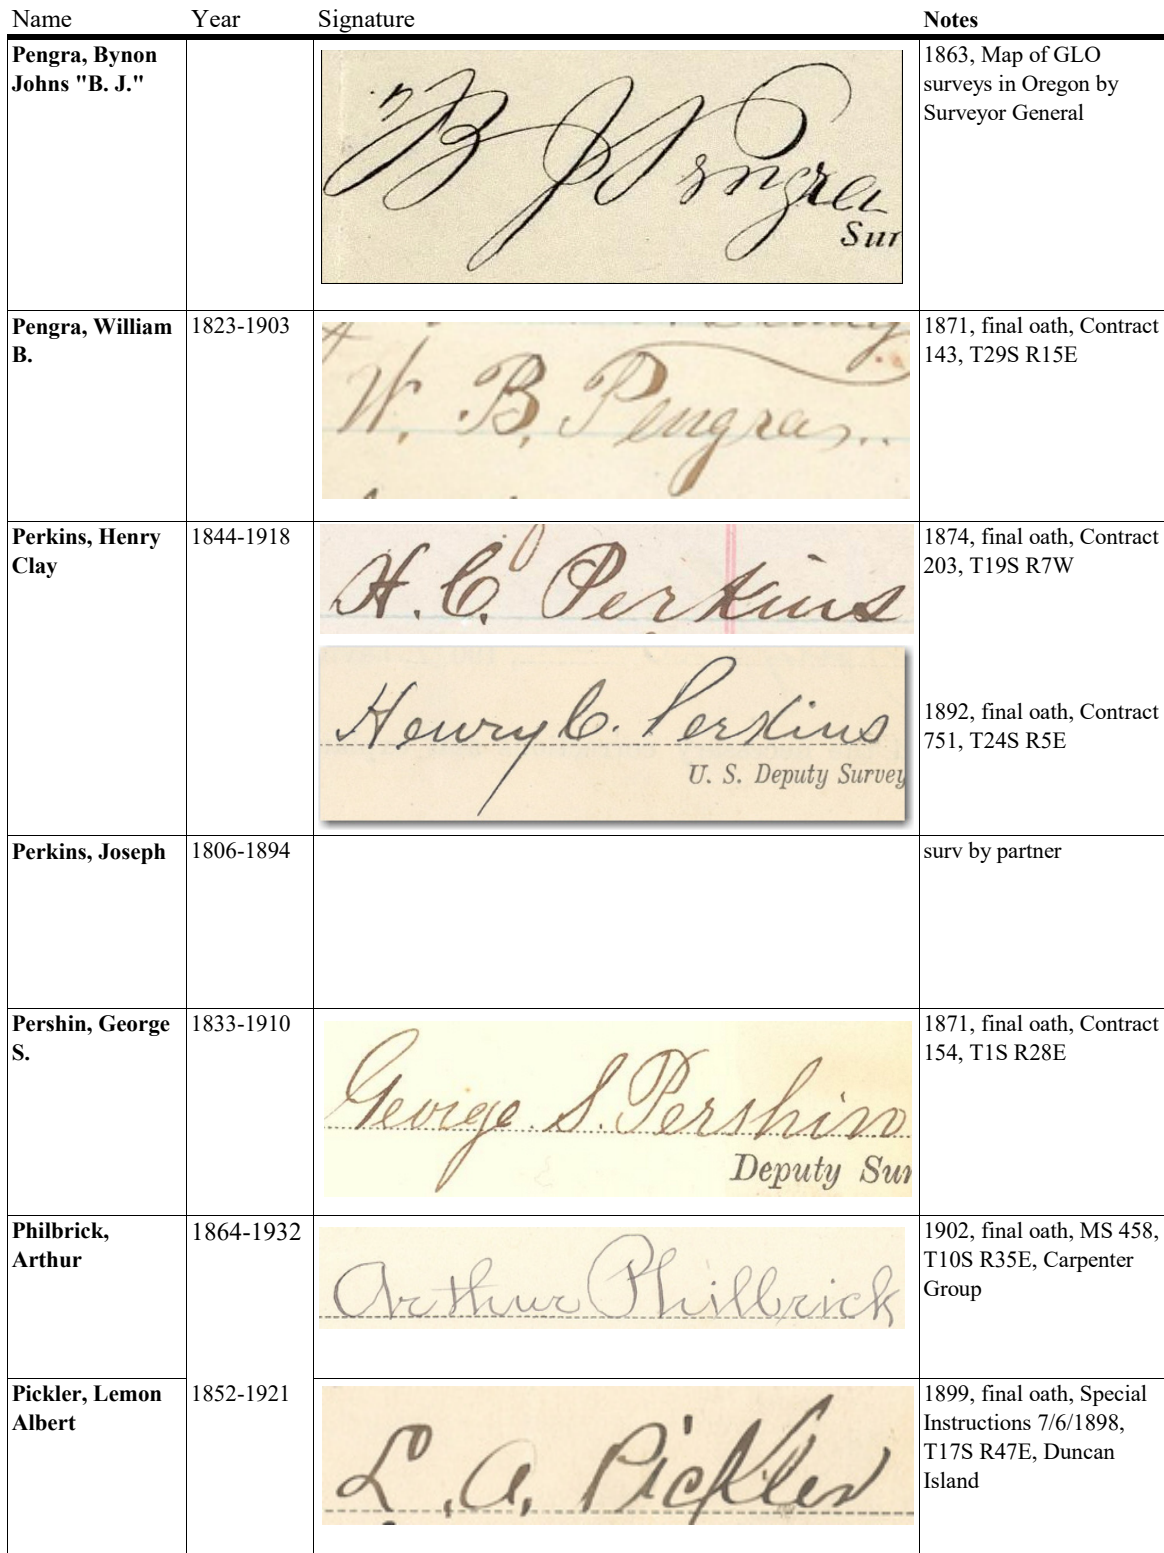 Name Year Signature Notes
Pengra, Bynon
Johns "B. J."
B J Pengra
Sur
1863, Map of GLO
surveys in Oregon by
Surveyor General
Pengra, William
B.
1823-1903
W. B. Pengra
1871, final oath, Contract
143, T29S R15E
Perkins, Henry
Clay
1844-1918
H. C. Perkins
1874, final oath, Contract
203, T19S R7W
Henry C. Perkins
U. S. Deputy Survey
1892, final oath, Contract
751, T24S R5E
Perkins, Joseph
1806-1894
surv by partner
Pershin, George
S.
1833-1910
George S. Pershin
Deputy Sur
1871, final oath, Contract
154, T1S R28E
Philbrick,
Arthur
1864-1932
Arthur Philbrick
1902, final oath, MS 458,
T10S R35E, Carpenter
Group
Pickler, Lemon
Albert
1852-1921
L. A. Pickler
1899, final oath, Special
Instructions 7/6/1898,
T17S R47E, Duncan
Island